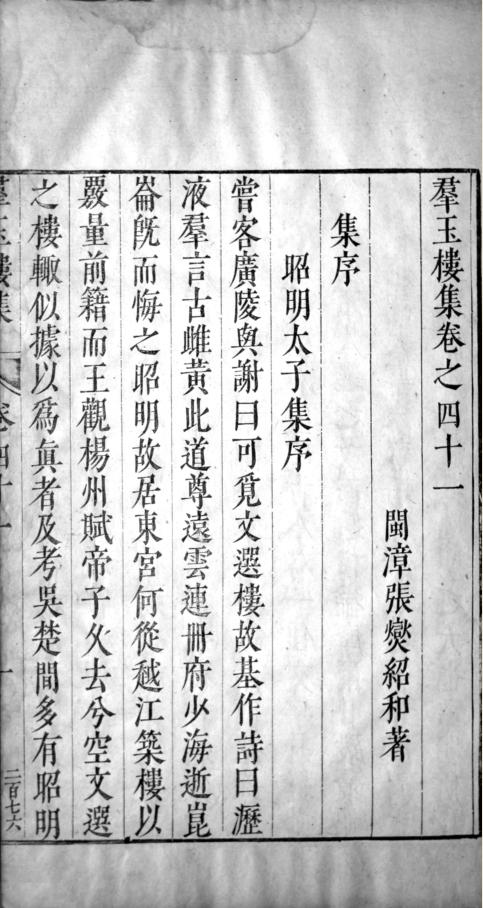 羣玉樓集卷之四十一
閩漳張燮紹和著
集序
昭明太子集序
嘗客廣陵與謝曰可覓文選樓故基作詩曰瀝
液羣言古雌黃此道尊遠雲連冊府少海逝崑
崙旣而悔之昭明故居東宮何從越江築樓以
覈量前籍而王觀楊州賦帝子久去兮空文選
之樓輙似據以爲眞者及考吳楚間多有昭明
羣玉樓集
卷四十一
一
二百七六